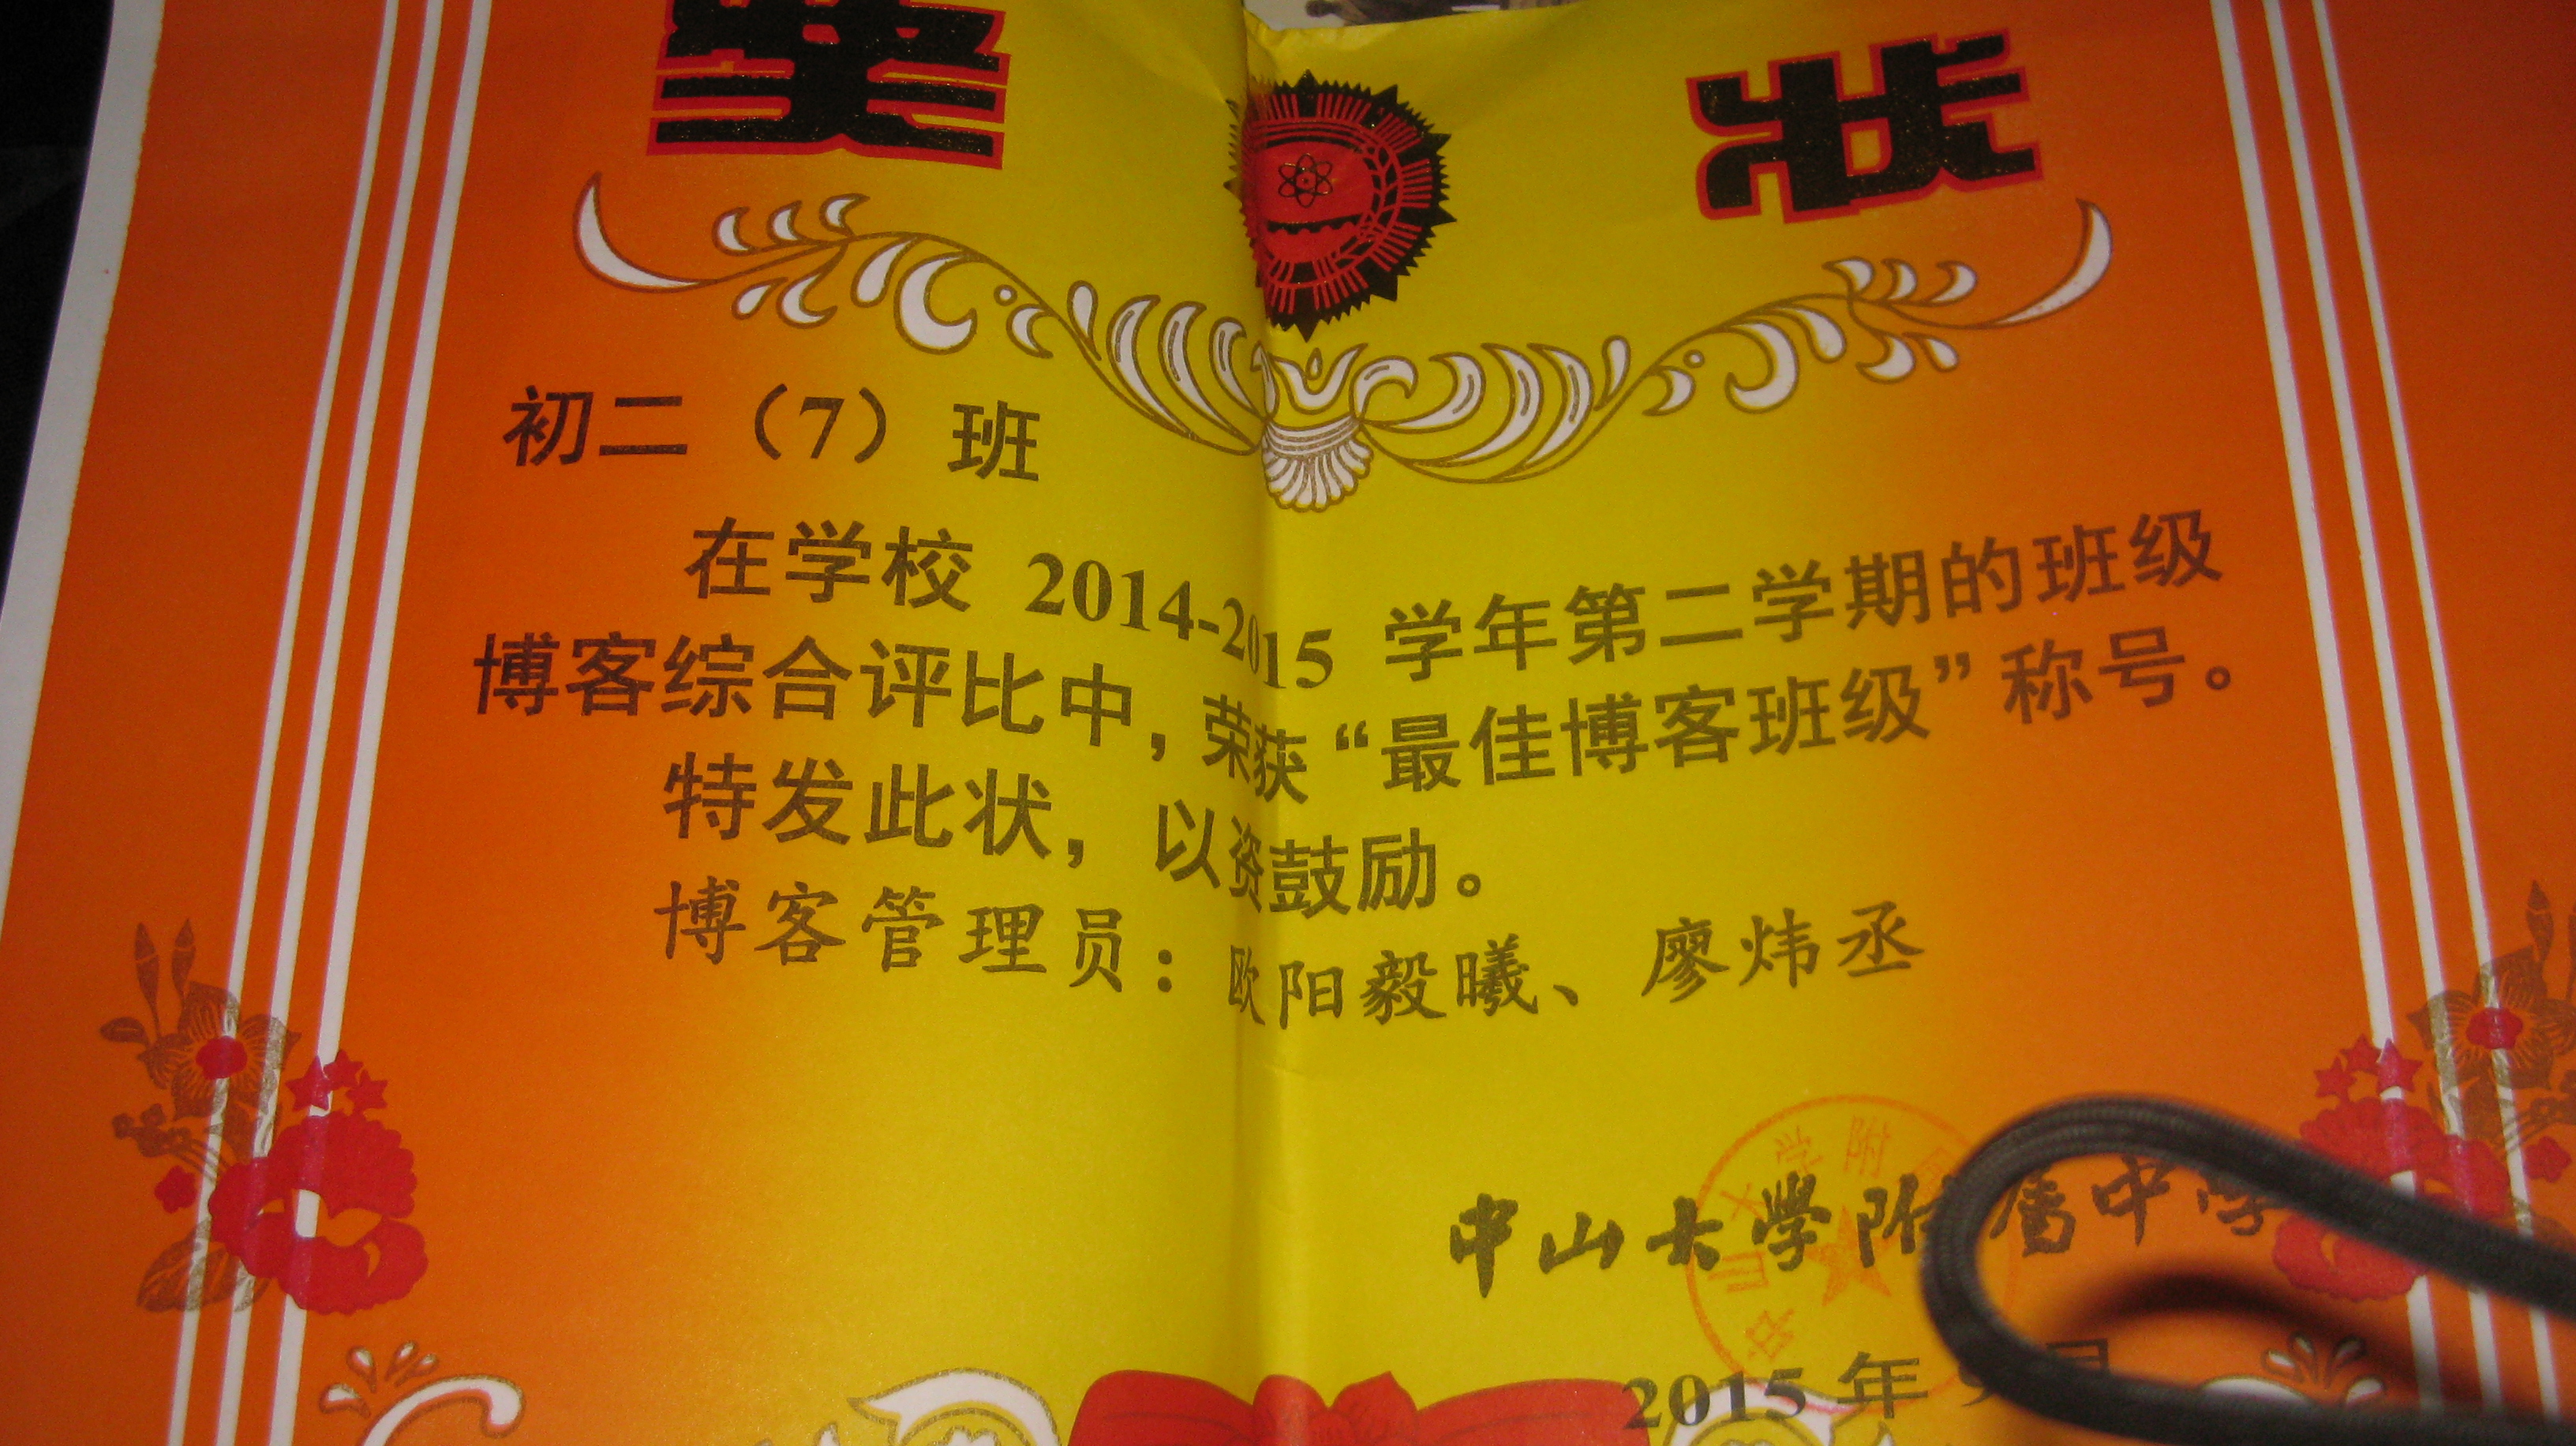 奖状
初二（7）班
在学校 2014-2015 学年第二学期的班级
博客综合评比中，荣获“最佳博客班级”称号。
特发此状，以资鼓励。
博客管理员：欧阳毅曦、廖炜丞
中山大学附属中学
2015 年